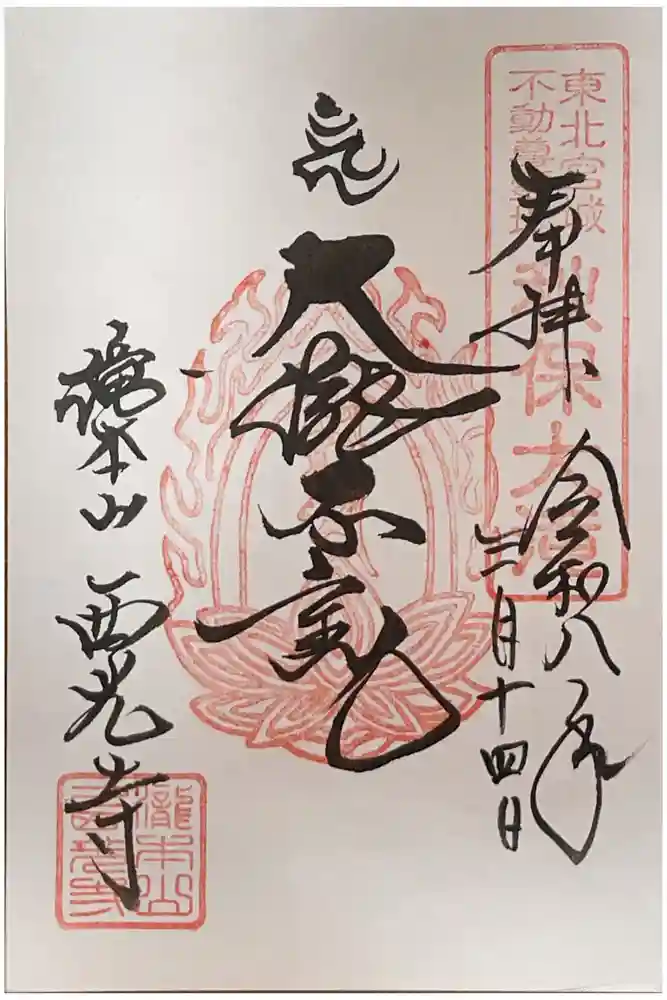 東北宮城
不動尊霊場
秋保大滝
奉拝
令和八年
三月十四日
大滝不動
滝本山
西光寺
瀧本山
西光寺